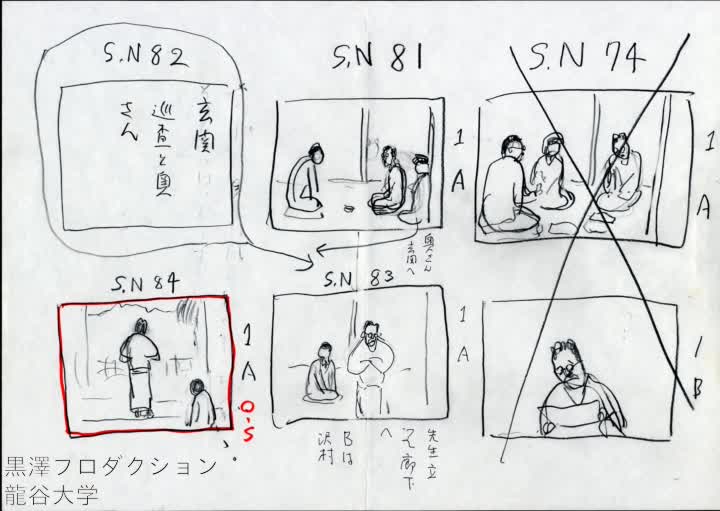 S.N 82
S.N 81
S.N 74
玄関
巡査と奥
さん
1
A
1
A
奥さん
玄関へ
S.N 84
S.N 83
1
A
O.S
1
A
1
B
先生立
って廊下
へ
Bは
沢村
黒澤プロダクション
龍谷大学